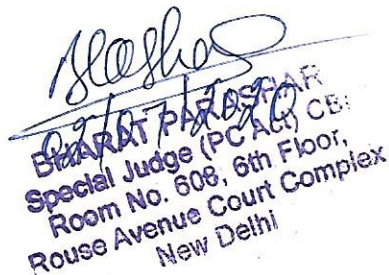 02/07/2020
BHARAT PARASHAR
Special Judge (PC Act) CBI
Room No. 608, 6th Floor,
Rouse Avenue Court Complex
New Delhi